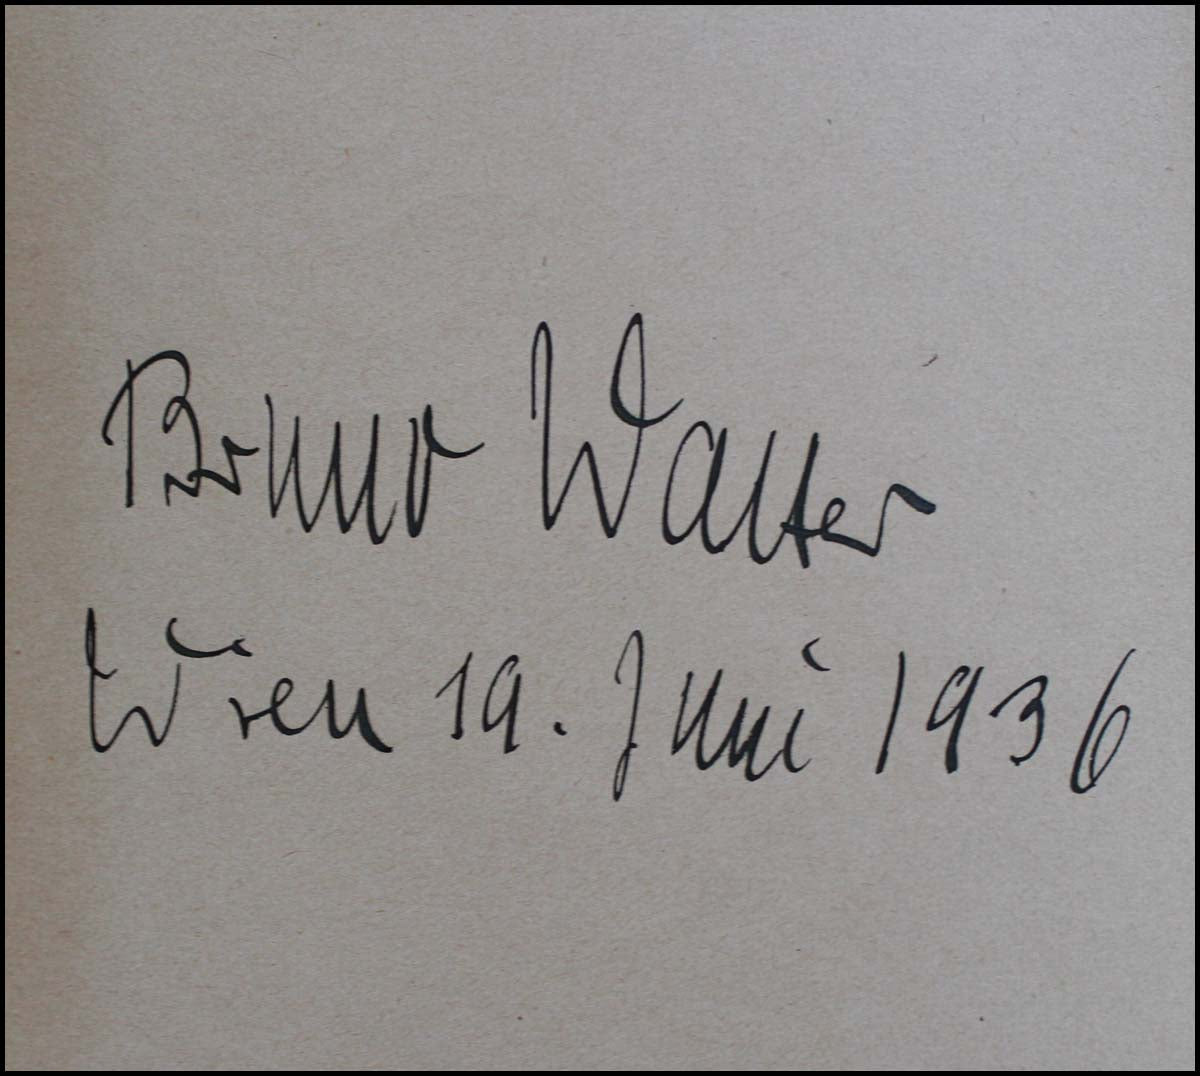 Bruno Walter
Wien 19. Juni 1936